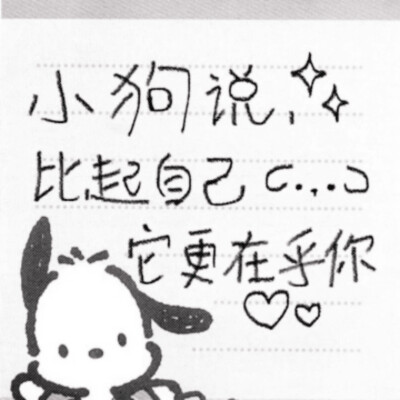 小狗说、
比起自己 (•.,•)
它更在乎你